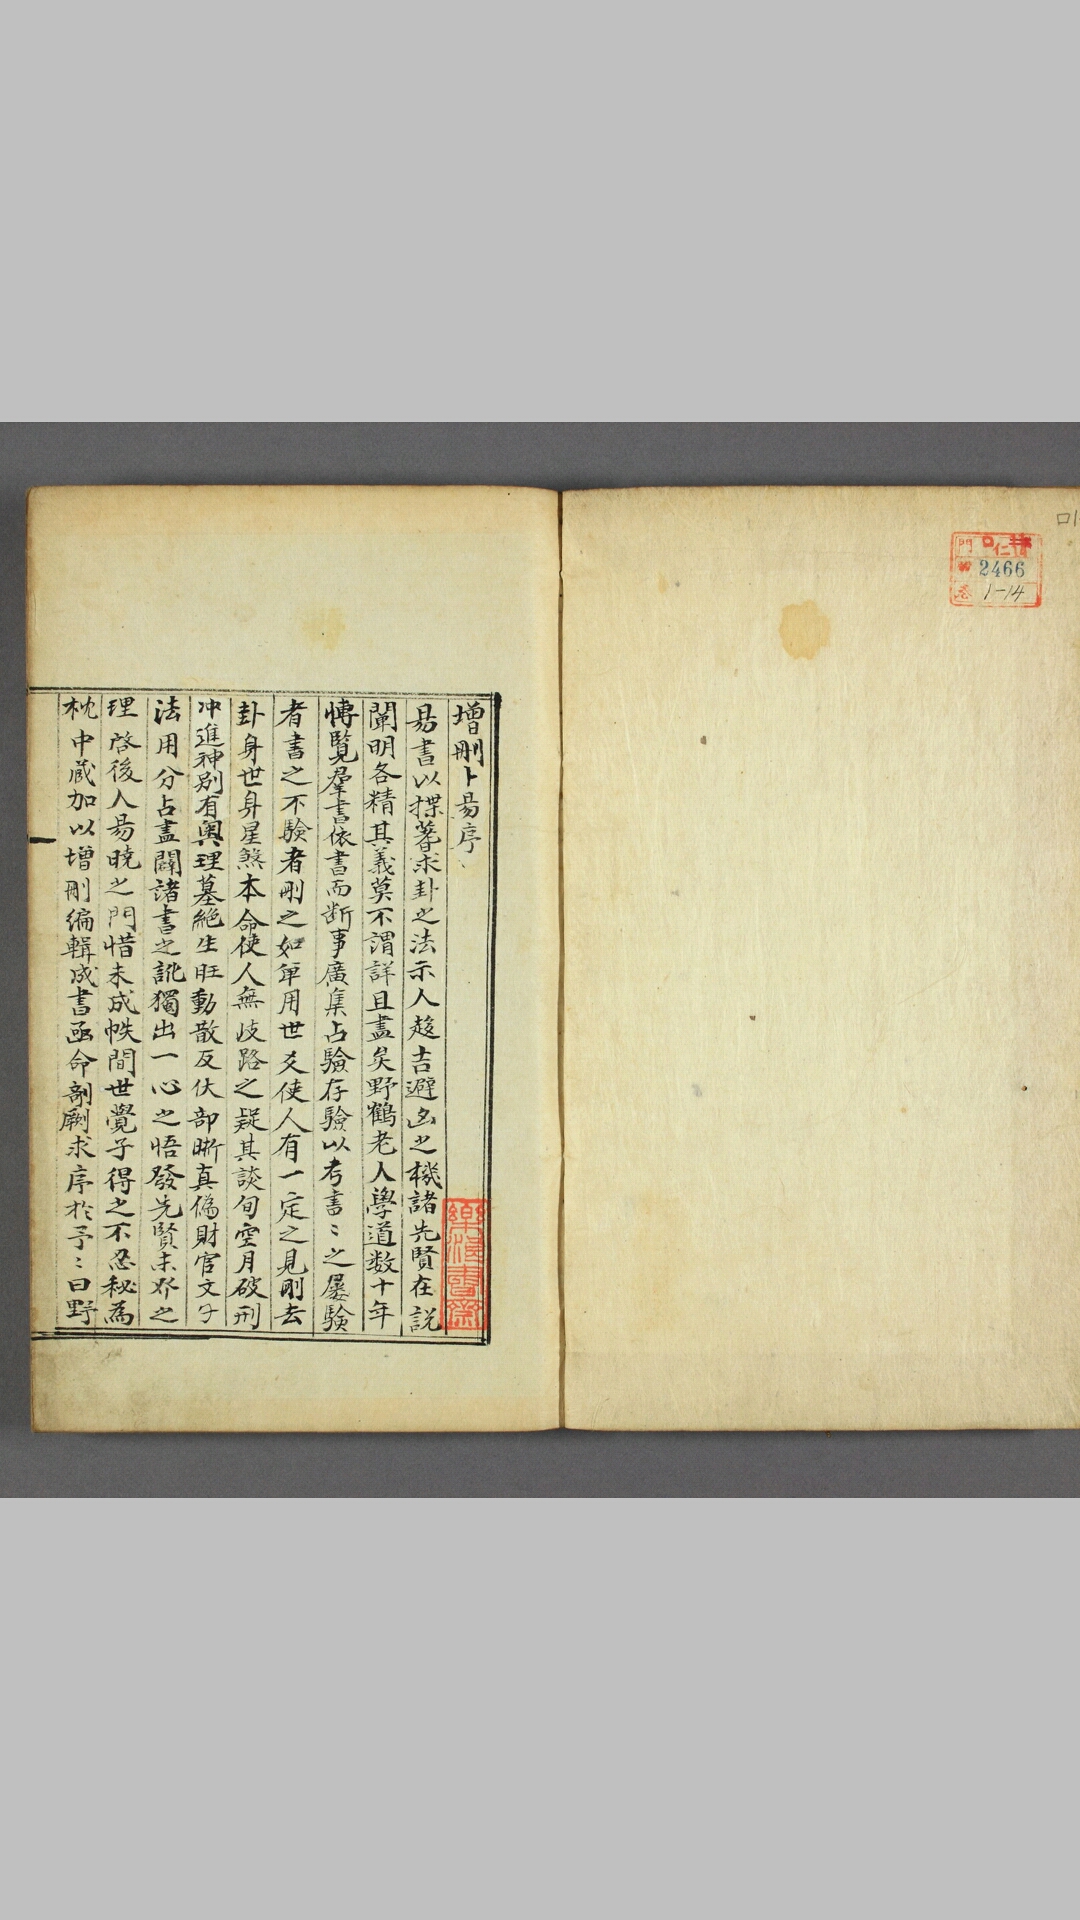 增刪卜易序
易書以揲蓍求卦之法示人趍吉避凶之機諸先賢在說
闡明各精其義莫不謂詳且盡矣野鶴老人學道数十年
慱覽羣書依書而断事廣集占驗存驗以考書〻之屡驗
者書之不驗者刪之如単用世爻使人有一定之見刪去
卦身世身星煞本命使人無岐路之疑其談旬空月破刑
冲進神别有奧理墓絶生旺動散反伏部晰真偽財官文子
法用分占盡闢諸書之訛獨出一心之悟發先賢未發之
理啓後人易曉之門惜未成帙間世覺子得之不忍秘為
枕中蔵加以增刪编輯成書亟命剞劂求序於予〻曰野
門 口仁
2466
巻 1-14